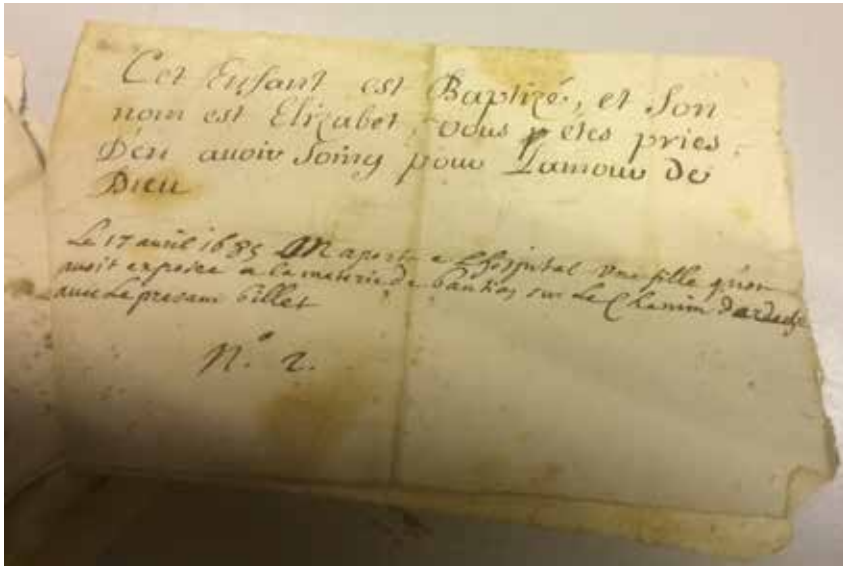 Cet Enfant est Baptizé, et Son
nom est Elizabet, vous etes pries
Den auoir Soing pour Lamour de
Dieu
Le 17 auril 1685 On aporta a Lhospital Vne fille qu'on
auoit exposée a la meterie de sur Le Chemin
auec Le presant billet
N.º 2.